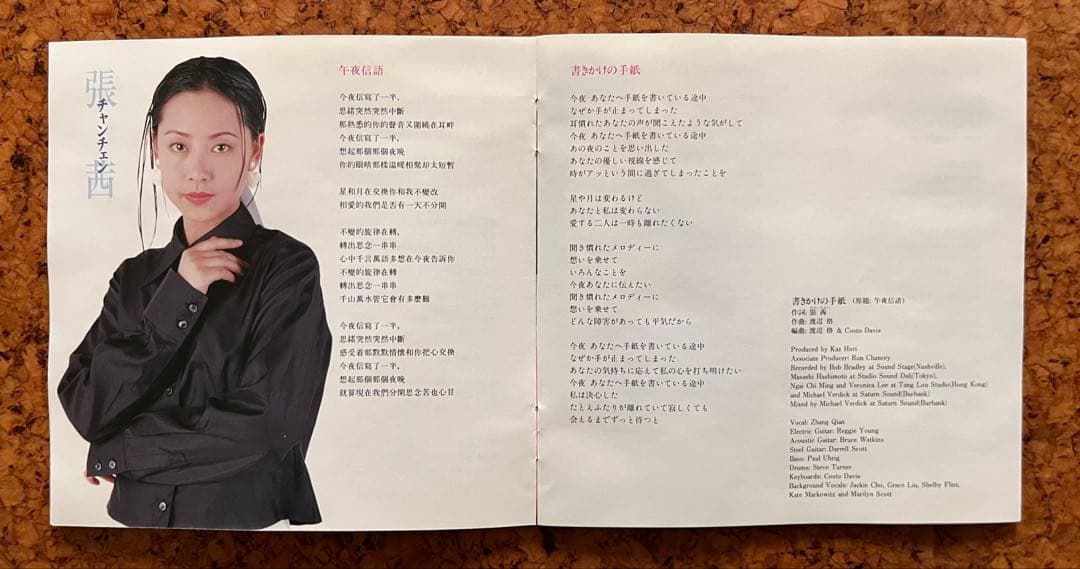 張茜
チャンチェン
午夜信語
今夜信寫了一半,
思緒突然突然中斷
那熟悉的你的聲音又圍繞在耳畔
今夜信寫了一半,
想起那個那個夜晚
你的眼睛那樣溫暖相聚却太短暫
星和月在交換你和我不變改
相愛的我們是否有一天不分開
不變的旋律在轉,
轉出思念一串串
心中千言萬語多想在今夜告訴你
不變的旋律在轉,
轉出思念一串串
千山萬水管它會有多麼難
今夜信寫了一半,
思緒突然突然中斷
感受着那默默情懷和你把心交換
今夜信寫了一半,
想起那個那個夜晚
就算現在我們分開思念苦也心甘
書きかけの手紙
今夜 あなたへ手紙を書いている途中
なぜか手が止まってしまった
耳慣れたあなたの声が聞こえたような気がして
今夜 あなたへ手紙を書いている途中
あの夜のことを思い出した
あなたの優しい視線を感じて
時がアッという間に過ぎてしまったことを
星や月は変わるけど
あなたと私は変わらない
愛する二人は一時も離れたくない
聞き慣れたメロディーに
想いを乗せて
いろんなことを
今夜あなたに伝えたい
聞き慣れたメロディーに
想いを乗せて
どんな障害があっても平気だから
今夜 あなたへ手紙を書いている途中
なぜか手が止まってしまった
あなたの気持ちに応えて私の心を打ち明けたい
今夜 あなたへ手紙を書いている途中
私は決心した
たとえふたりが離れていて寂しくても
会えるまでずっと待つと
書きかけの手紙 (原題: 午夜信語)
作詞: 張 茜
作曲: 渡辺 格
編曲: 渡辺 格 & Costo Davis
Produced by Kaz Hori
Associate Producer: Ron Chancey
Recorded by Bob Bradley at Sound Stage(Nashville),
Masashi Hashimoto at Studio Sound Dali(Tokyo),
Ngai Chi Ming and Veronica Lee at Tang Lou Studio(Hong Kong)
and Michael Verdick at Saturn Sound(Burbank)
Mixed by Michael Verdick at Saturn Sound(Burbank)
Vocal: Zhang Qian
Electric Guitar: Reggie Young
Acoustic Guitar: Bruce Watkins
Steel Guitar: Darrell Scott
Bass: Paul Uhrig
Drums: Steve Turner
Keyboards: Costo Davis
Background Vocals: Jackie Cho, Grace Liu, Shelby Flint,
Kate Markowitz and Marilyn Scott